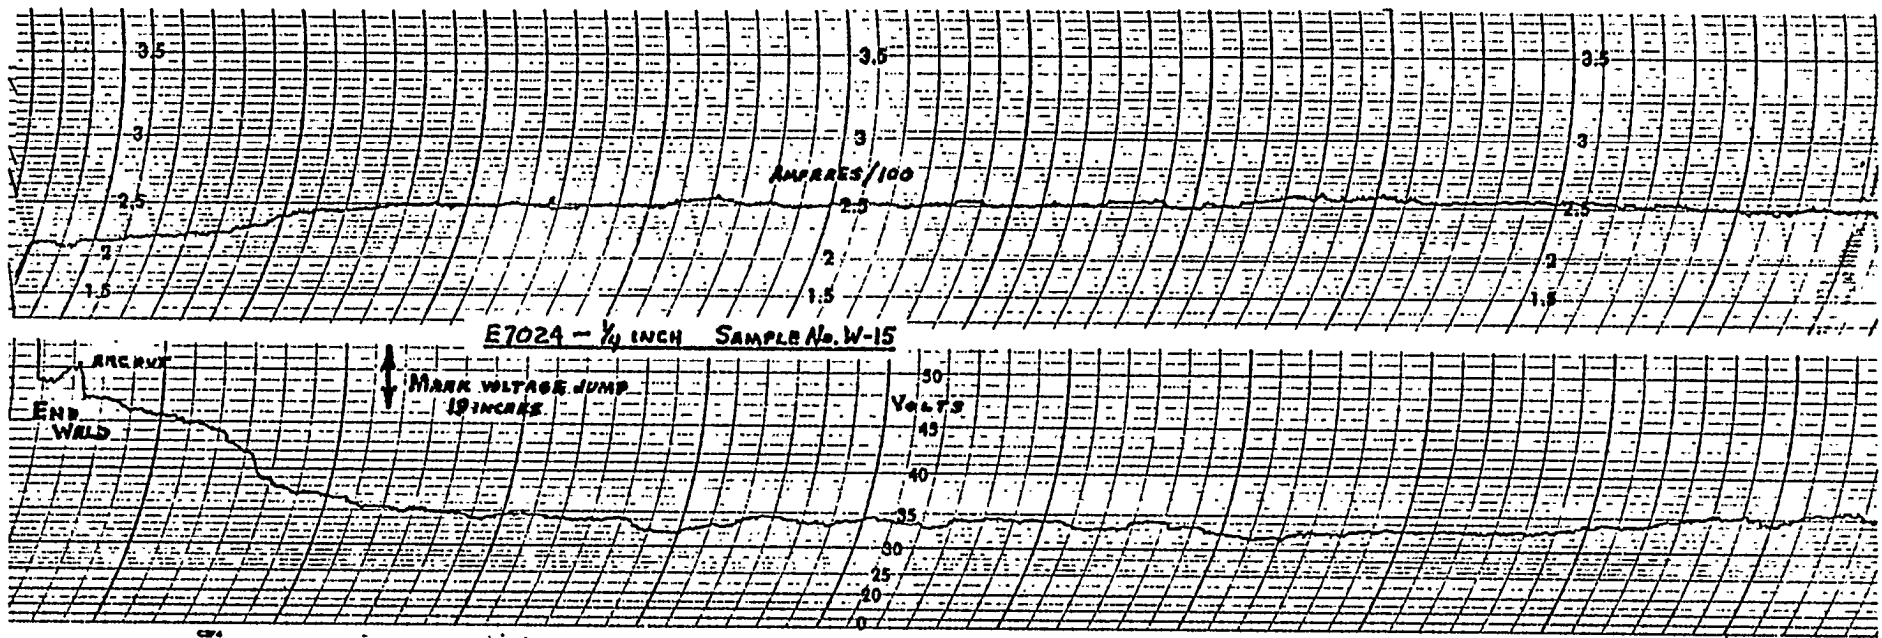 3.5 3.5 3.5
3 3 3
AMPERES/100
2.5 2.5 2.5
2 2 2
1.5 1.5 1.5
E7024 - 1/4 INCH SAMPLE No. W-15
ARC OUT
MARK VOLTAGE JUMP
19 INCHES
END
WELD
50
VOLTS
45
40
35
30
25
20
0